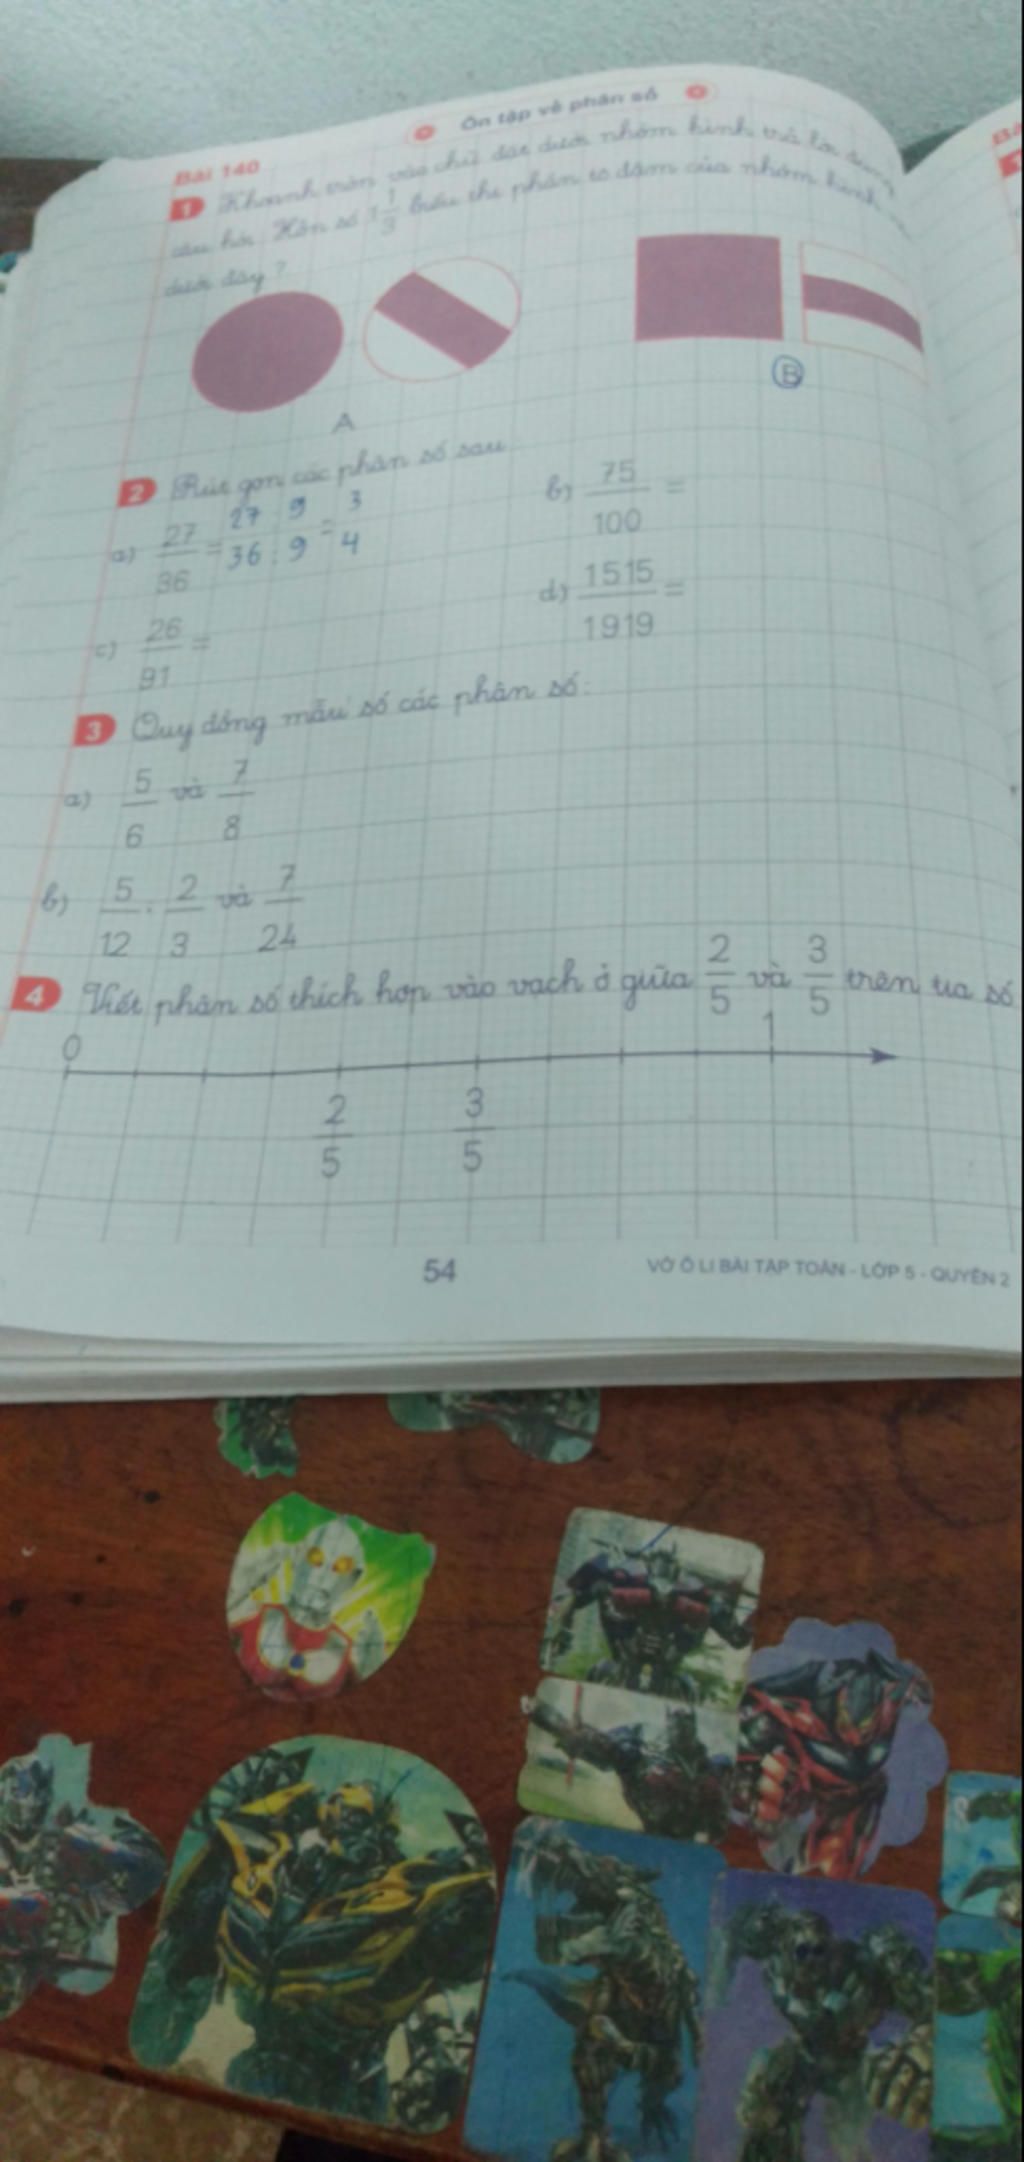 Ôn tập về phân số
Bài 140
1 Khoanh tròn vào chữ đặt dưới nhóm hình trả lời đúng
câu hỏi: Hỗn số 1 1/3 biểu thị phần tô đậm của nhóm hình
dưới đây?
A B
2 Rút gọn các phân số sau
a) 27/36 = 27 : 9 / 36 : 9 = 3/4 b) 75/100 =
c) 26/91 = d) 1515/1919 =
3 Quy đồng mẫu số các phân số:
a) 5/6 và 7/8
b) 5/12 ; 2/3 và 7/24
4 Viết phân số thích hợp vào vạch ở giữa 2/5 và 3/5 trên tia số
0 1
2/5 3/5
54 VỞ Ô LI BÀI TẬP TOÁN - LỚP 5 - QUYỂN 2